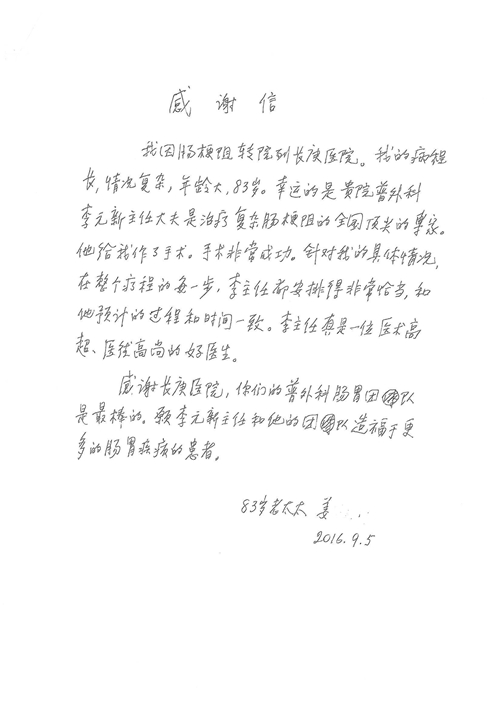 感谢信
我因肠梗阻转院到长庚医院。我的病程
长,情况复杂,年龄大,83岁。幸运的是贵院普外科
李元新主任大夫是治疗复杂肠梗阻的全国顶尖的专家。
他给我作了手术。手术非常成功。针对我的具体情况,
在整个疗程的每一步,李主任都安排得非常恰当,和
他预计的过程和时间一致。李主任真是一位医术高
超、医德高尚的好医生。
感谢长庚医院,你们的普外科肠胃团队
是最棒的。愿李元新主任和他的团队造福于更
多的肠胃疾病的患者。
83岁老太太 姜
2016.9.5